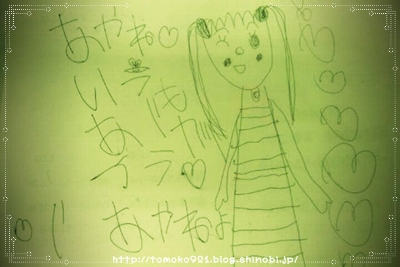 あやね♡
いつも
あ が
う♡
あやねよ
http://tomoko921.blog.shinobi.jp/